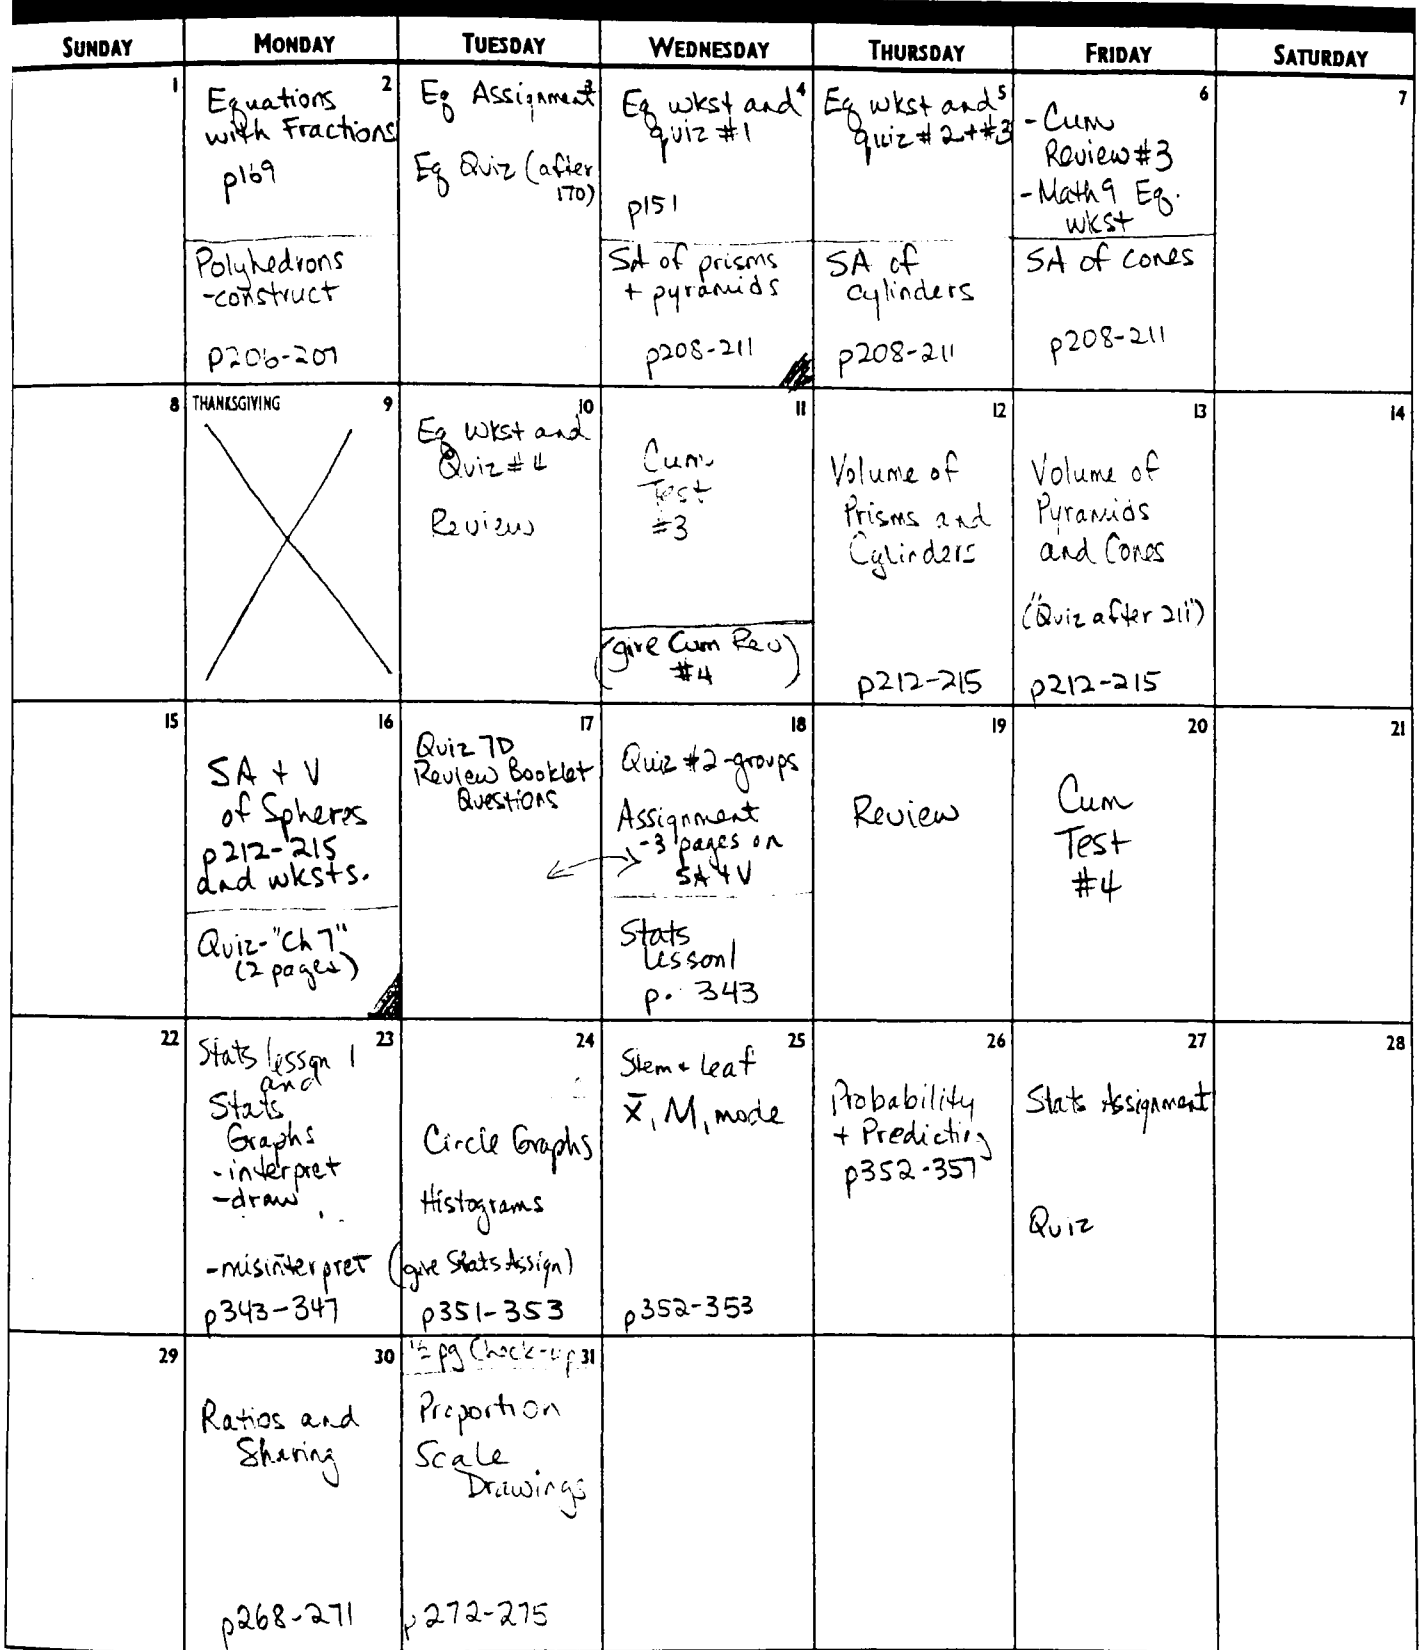 SUNDAY MONDAY TUESDAY WEDNESDAY THURSDAY FRIDAY SATURDAY
1
2
Equations
with Fractions
p169
Polyhedrons
-construct
p206-207
3
Eq Assignment
Eq Quiz (after
170)
4
Eq wkst and
quiz #1
p151
SA of prisms
+ pyramids
p208-211
5
Eq wkst and
quiz #2+#3
SA of
cylinders
p208-211
6
-Cum
Review #3
-Math 9 Eq.
wkst
SA of cones
p208-211
7
8
THANKSGIVING 9
10
Eq Wkst and
Quiz #4
Review
11
Cum
Test
#3
(give Cum Rev)
#4
12
Volume of
Prisms and
Cylinders
p212-215
13
Volume of
Pyramids
and Cones
("Quiz after 211")
p212-215
14
15
16
SA + V
of Spheres
p212-215
and wksts.
Quiz-"Ch 7"
(2 pages)
17
Quiz 7D
Review Booklet
Questions
18
Quiz #2-groups
Assignment
-3 pages on
SA + V
Stats
Lesson 1
p. 343
19
Review
20
Cum
Test
#4
21
22
23
Stats lesson 1
and
Stats
Graphs
-interpret
-draw
-misinterpret
p343-347
24
Circle Graphs
Histograms
(give Stats Assign)
p351-353
25
Stem + leaf
x̄, M, mode
p352-353
26
Probability
+ Predicting
p352-357
27
Stats Assignment
Quiz
28
29
30
Ratios and
Sharing
p268-271
½ pg Check-up 31
Proportion
Scale
Drawings
p272-275